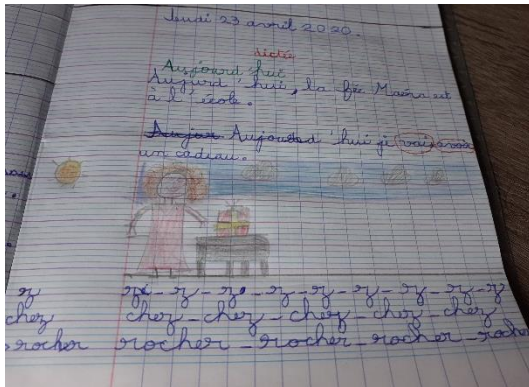 Jeudi 23 avril 2020.
dictée
Aujourd'hui
Aujourd'hui, la fée Maéra est
à l'école.
Aujou Aujourd'hui je vais avoir
un cadeau.
z z - z - z - z - z - z - z - z
chez chez - chez - chez - chez - chez
rocher rocher - rocher - rocher - rocher